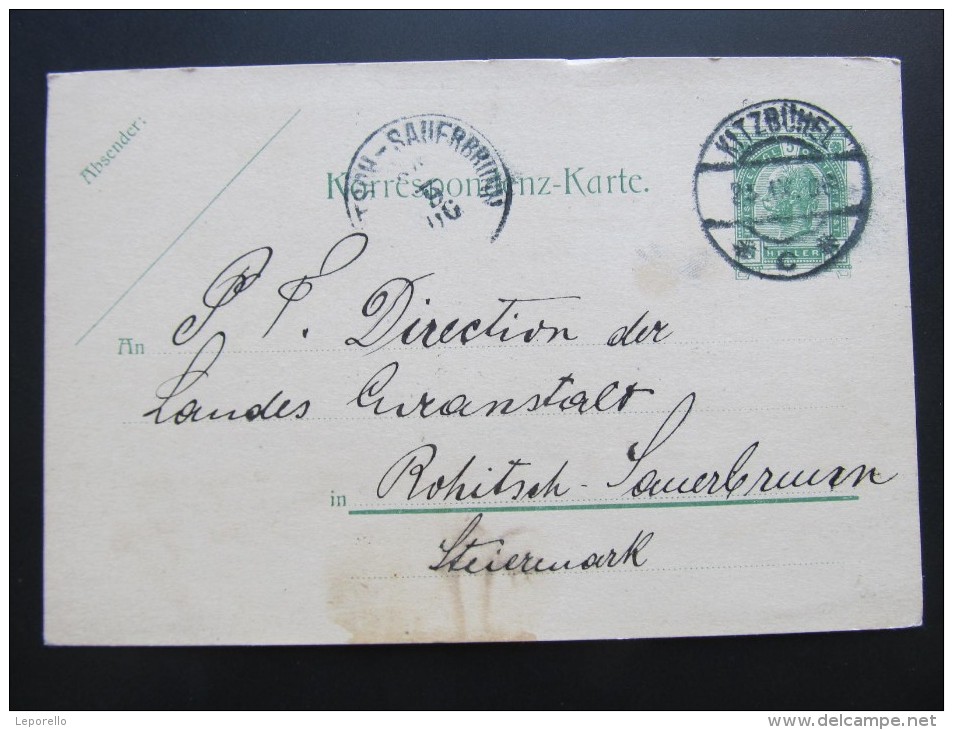 Absender:
TSCH-SAUERBRUNN
Korrespondenz-Karte.
KITZBÜHEL
5
HELLER
* C *
An P. T. Direction der
Landes Curanstalt
in Rohitsch-Sauerbrunn
Steiermark
Leporello
www.delcampe.net